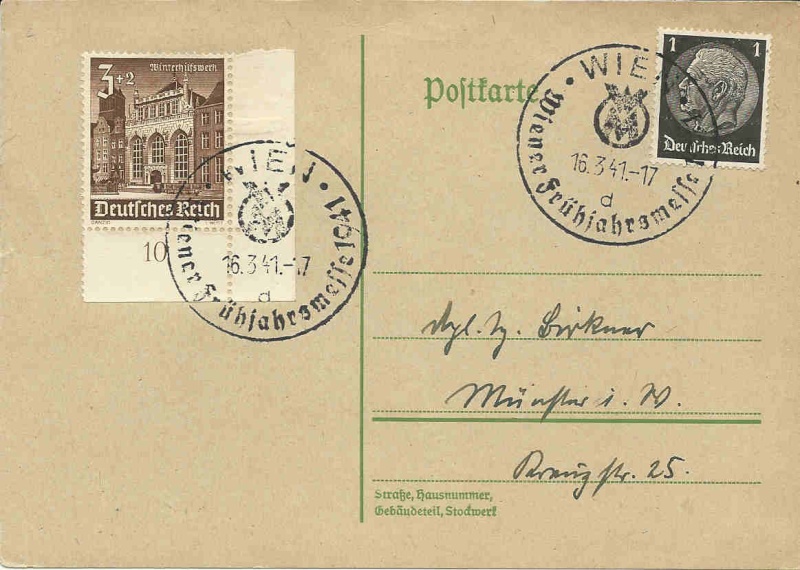 3+2
Winterhilfswerk
Deutsches Reich
10
WIEN
16.3.41.-17
d
Wiener Frühjahrsmesse 1941
Postkarte
WIEN
16.3.41.-17
d
Wiener Frühjahrsmesse 1
1 1
Deutsches Reich
Dpl. Ig. Birkner
Münster i. W.
Kreuzstr. 25.
Straße, Hausnummer,
Gebäudeteil, Stockwerk